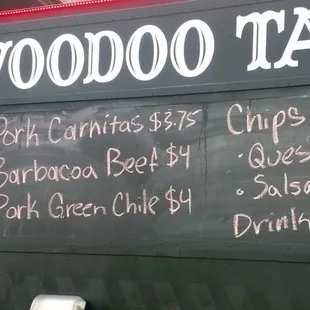 VOODOO TA
Pork Carnitas $3.75
Barbacoa Beef $4
Pork Green Chile $4
Chips
• Ques
• Salsa
Drink